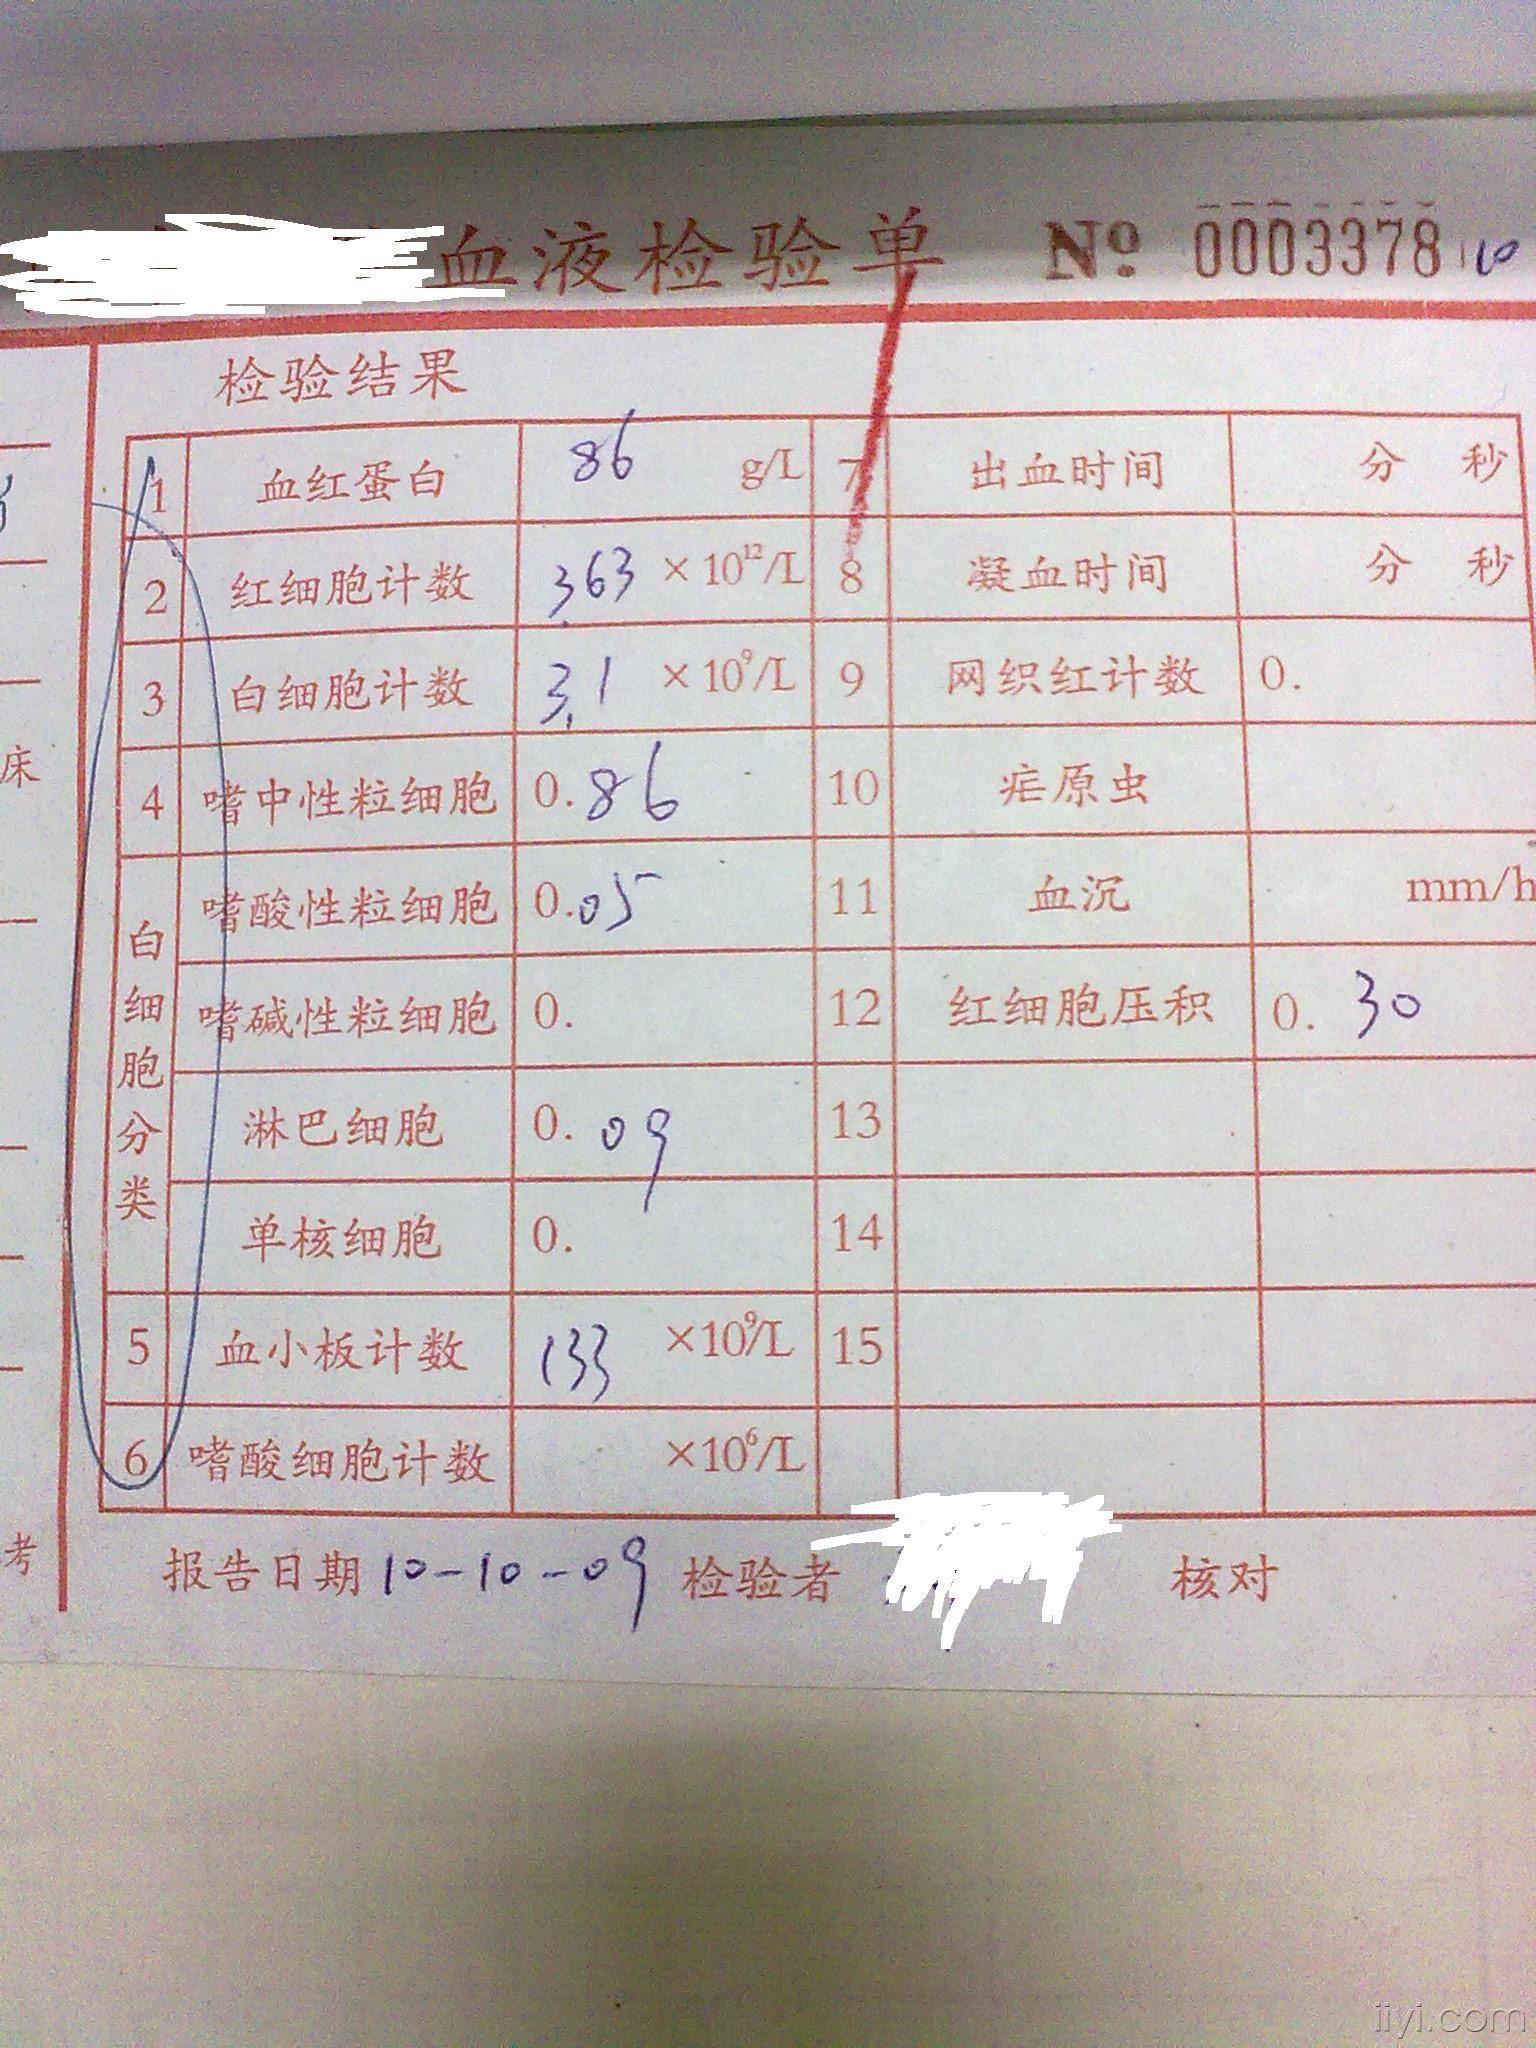 血液检验单 № 0003378 10
检验结果
1 血红蛋白 86 g/L 7 出血时间 分 秒
2 红细胞计数 3.63 ×10¹²/L 8 凝血时间 分 秒
3 白细胞计数 3.1 ×10⁹/L 9 网织红计数 0.
4 嗜中性粒细胞 0.86 10 疟原虫
白细胞分类
嗜酸性粒细胞 0.05 11 血沉 mm/h
嗜碱性粒细胞 0. 12 红细胞压积 0.30
淋巴细胞 0.09 13
单核细胞 0. 14
5 血小板计数 133 ×10⁹/L 15
6 嗜酸细胞计数 ×10⁶/L
报告日期 10-10-09 检验者 核对
床
考
iiyi.com